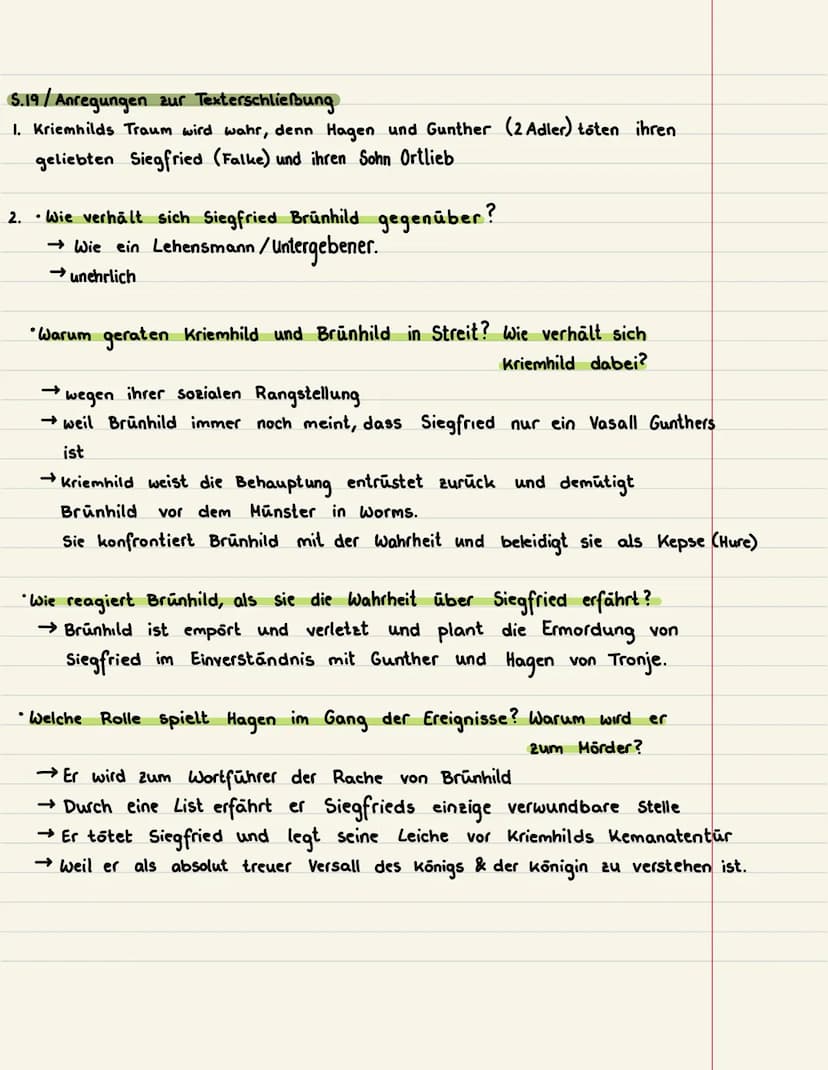 S.19/Anregungen zur Texterschließung
1. Kriemhilds Traum wird wahr, denn Hagen und Gunther (2 Adler) töten ihren
geliebten Siegfried (Falke) und ihren Sohn Ortlieb
2. · Wie verhält sich Siegfried Brünhild gegenüber?
→ Wie ein Lehensmann/Untergebener.
→ unehrlich
· Warum geraten Kriemhild und Brünhild in Streit? Wie verhält sich
Kriemhild dabei?
→ wegen ihrer sozialen Rangstellung
→ weil Brünhild immer noch meint, dass Siegfried nur ein Vasall Gunthers
ist
→ Kriemhild weist die Behauptung entrüstet zurück und demütigt
Brünhild vor dem Münster in Worms.
Sie konfrontiert Brünhild mit der Wahrheit und beleidigt sie als Kepse (Hure)
· Wie reagiert Brünhild, als sie die Wahrheit über Siegfried erfährt?
→ Brünhild ist empört und verletzt und plant die Ermordung von
Siegfried im Einverständnis mit Gunther und Hagen von Tronje.
· Welche Rolle spielt Hagen im Gang der Ereignisse? Warum wird er
zum Mörder?
→ Er wird zum Wortführer der Rache von Brünhild
→ Durch eine List erfährt er Siegfrieds einzige verwundbare Stelle
→ Er tötet Siegfried und legt seine Leiche vor Kriemhilds Kemanatentür
→ Weil er als absolut treuer Versall des Königs & der Königin zu verstehen ist.